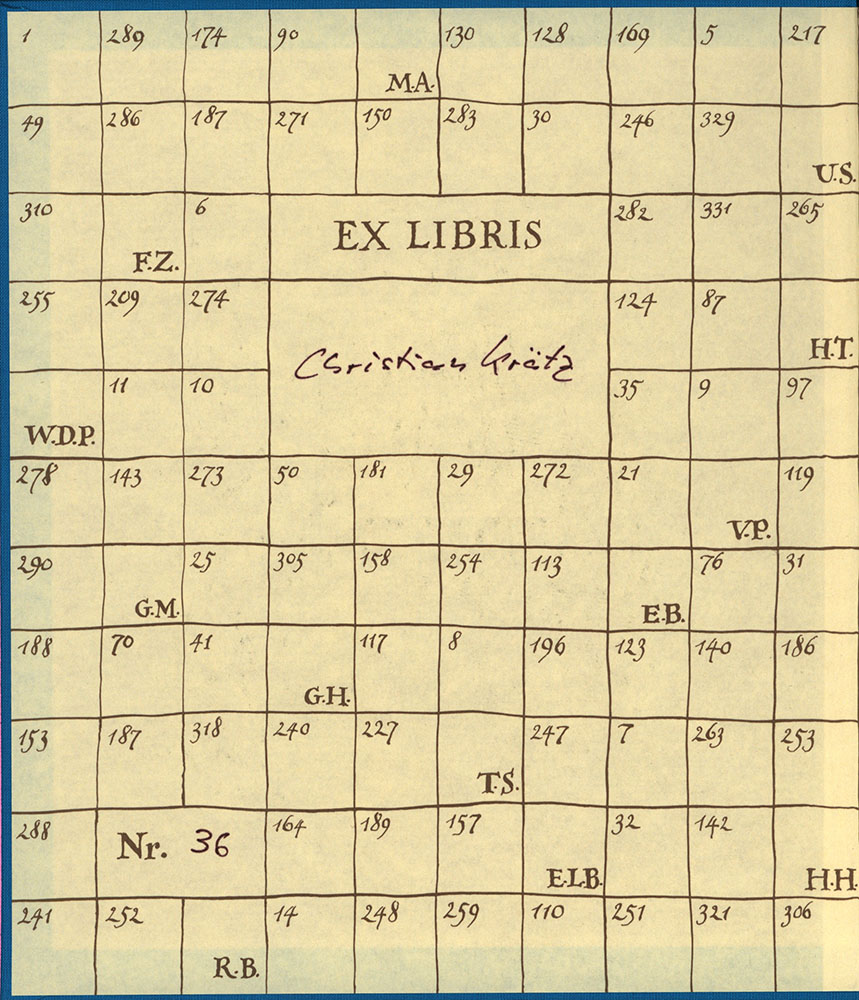 1 289 174 90 M.A. 130 128 169 5 217
49 286 187 271 150 283 30 246 329 U.S.
310 F.Z. 6 EX LIBRIS 282 331 265
255 209 274 Christian Krätz 124 87 H.T.
W.D.P. 11 10 35 9 97
278 143 273 50 181 29 272 21 V.P. 119
290 G.M. 25 305 158 254 113 E.B. 76 31
188 70 41 G.H. 117 8 196 123 140 186
153 187 318 240 227 T.S. 247 7 263 253
288 Nr. 36 164 189 157 E.L.B. 32 142 H.H.
241 252 R.B. 14 248 259 110 251 321 306